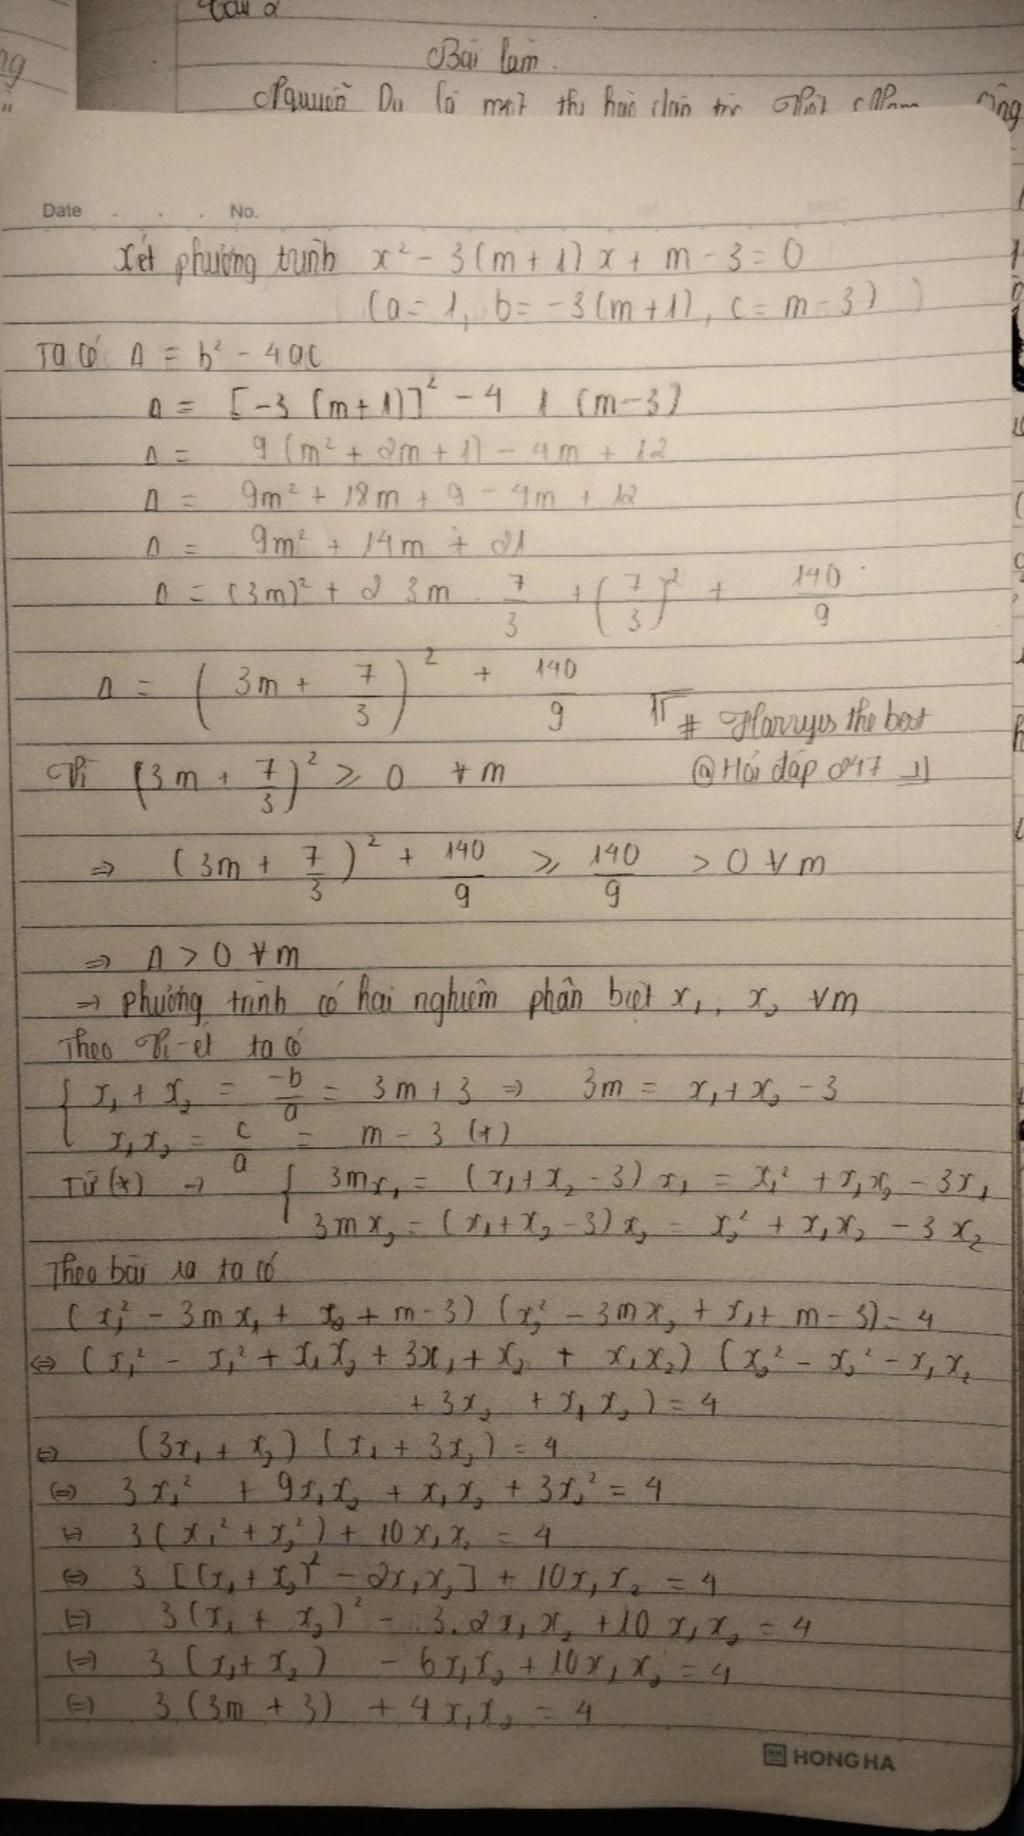 Câu 2
Bài làm.
Nguyễn Du là một thi hào dân tộc Việt Nam
Date . . . No.
Xét phương trình x² - 3(m+1)x + m - 3 = 0
(a = 1, b = -3(m+1), c = m - 3)
Ta có Δ = b² - 4ac
Δ = [-3(m+1)]² - 4 1 (m-3)
Δ = 9(m² + 2m + 1) - 4m + 12
Δ = 9m² + 18m + 9 - 4m + 12
Δ = 9m² + 14m + 21
Δ = (3m)² + 2 3m . 7/3 + (7/3)² + 140/9
Δ = (3m + 7/3)² + 140/9
# Harryisthebest
Vì (3m + 7/3)² ≥ 0 ∀m
@Hỏi đáp 247
⇒ (3m + 7/3)² + 140/9 ≥ 140/9 > 0 ∀m
⇒ Δ > 0 ∀m
⇒ phương trình có hai nghiệm phân biệt x₁, x₂ ∀m
Theo Vi-et ta có
{ x₁ + x₂ = -b/a = 3m + 3 ⇒ 3m = x₁ + x₂ - 3
x₁x₂ = c/a = m - 3 (*)
Từ (*) → { 3mx₁ = (x₁ + x₂ - 3)x₁ = x₁² + x₁x₂ - 3x₁
3mx₂ = (x₁ + x₂ - 3)x₂ = x₂² + x₁x₂ - 3x₂
Theo bài ra ta có
(x₁² - 3mx₁ + x₂ + m - 3)(x₂² - 3mx₂ + x₁ + m - 3) = 4
⇔ (x₁² - x₁² + x₁x₂ + 3x₁ + x₂ + x₁x₂)(x₂² - x₂² - x₁x₂
+ 3x₂ + x₁x₂) = 4
⇔ (3x₁ + x₂)(x₁ + 3x₂) = 4
⇔ 3x₁² + 9x₁x₂ + x₁x₂ + 3x₂² = 4
⇔ 3(x₁² + x₂²) + 10x₁x₂ = 4
⇔ 3[(x₁ + x₂)² - 2x₁x₂] + 10x₁x₂ = 4
⇔ 3(x₁ + x₂)² - 3.2x₁x₂ + 10x₁x₂ = 4
⇔ 3(x₁ + x₂) - 6x₁x₂ + 10x₁x₂ = 4
⇔ 3(3m + 3) + 4x₁x₂ = 4
HONG HA